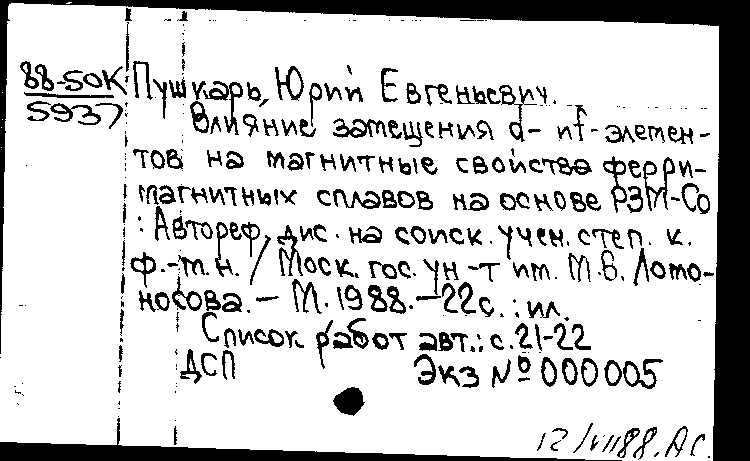 88-50К
5937
Пушкарь, Юрий Евгеньевич.
Влияние замещения d- и f-элемен-
тов на магнитные свойства ферри-
магнитных сплавов на основе РЗМ-Со
: Автореф. дис. на соиск. учен. степ. к.
ф.-м.н. / Моск. гос. ун-т им. М.В. Ломо-
носова. – М. 1988. – 22с. : ил.
Список работ авт.: с. 21-22
ДСП Экз № 000005
12/VII88. АС.